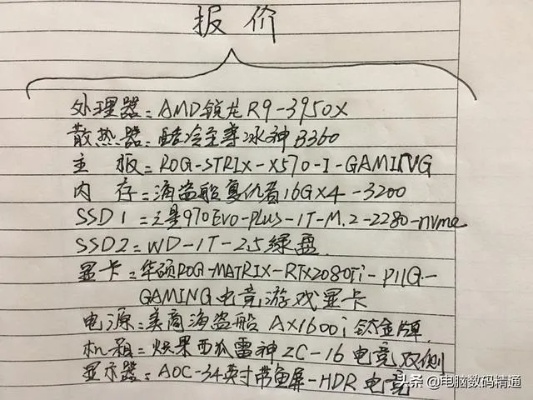 报价
处理器:AMD锐龙R9-3950X
散热器:酷冷至尊冰神B360
主板:ROG-STRIX-X570-I-GAMING
内存:海盗船复仇者16GX4-3200
SSD1:三星970Evo-plus-1T-M.2-2280-nvme
SSD2:WD-1T-2.5绿盘
显卡:华硕ROG-MATRIX-RTX2080Ti-P11G-
GAMING电竞游戏显卡
电源:美商海盗船AX1600i钛金牌
机箱:炫果西狐雷神ZC-16电竞双侧
显示器:AOC-34英寸带鱼屏-HDR电竞
头条@电脑数码精通